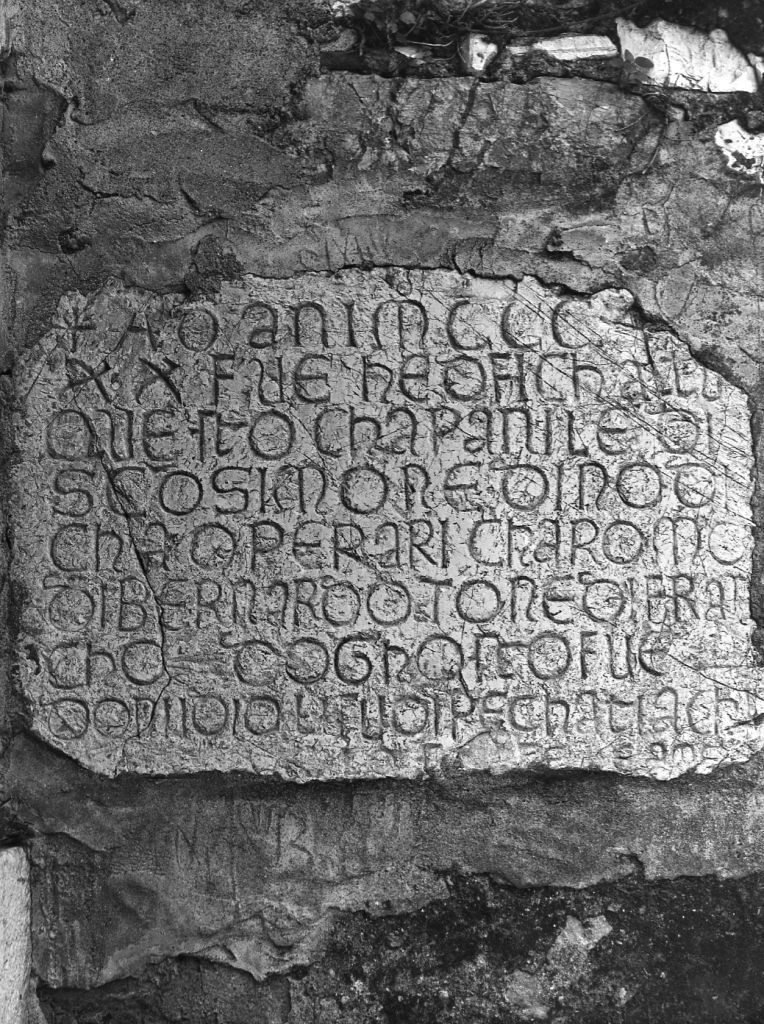 + A D ANI M CCC
XX FUE HEDIFICHATU
QUESTO CHAPANILE DI
SCO SIMONE DINO DI
CHA OPERARI CHAROMO
DI BERNARDO TONE DI FRAN
CHO DOGNOSTO FUE
DONI IDIO VTU DI PECHATI ACH